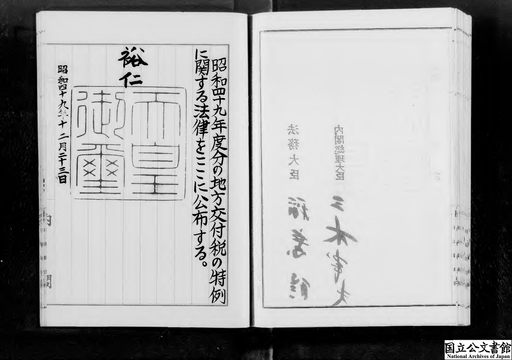 内閣総理大臣
三木武夫
法務大臣
稲葉修
昭和四十九年度分の地方交付税の特例
に関する法律をここに公布する。
裕仁
天皇
御璽
昭和四十九年十二月二十三日
内
閣
国立公文書館
National Archives of Japan